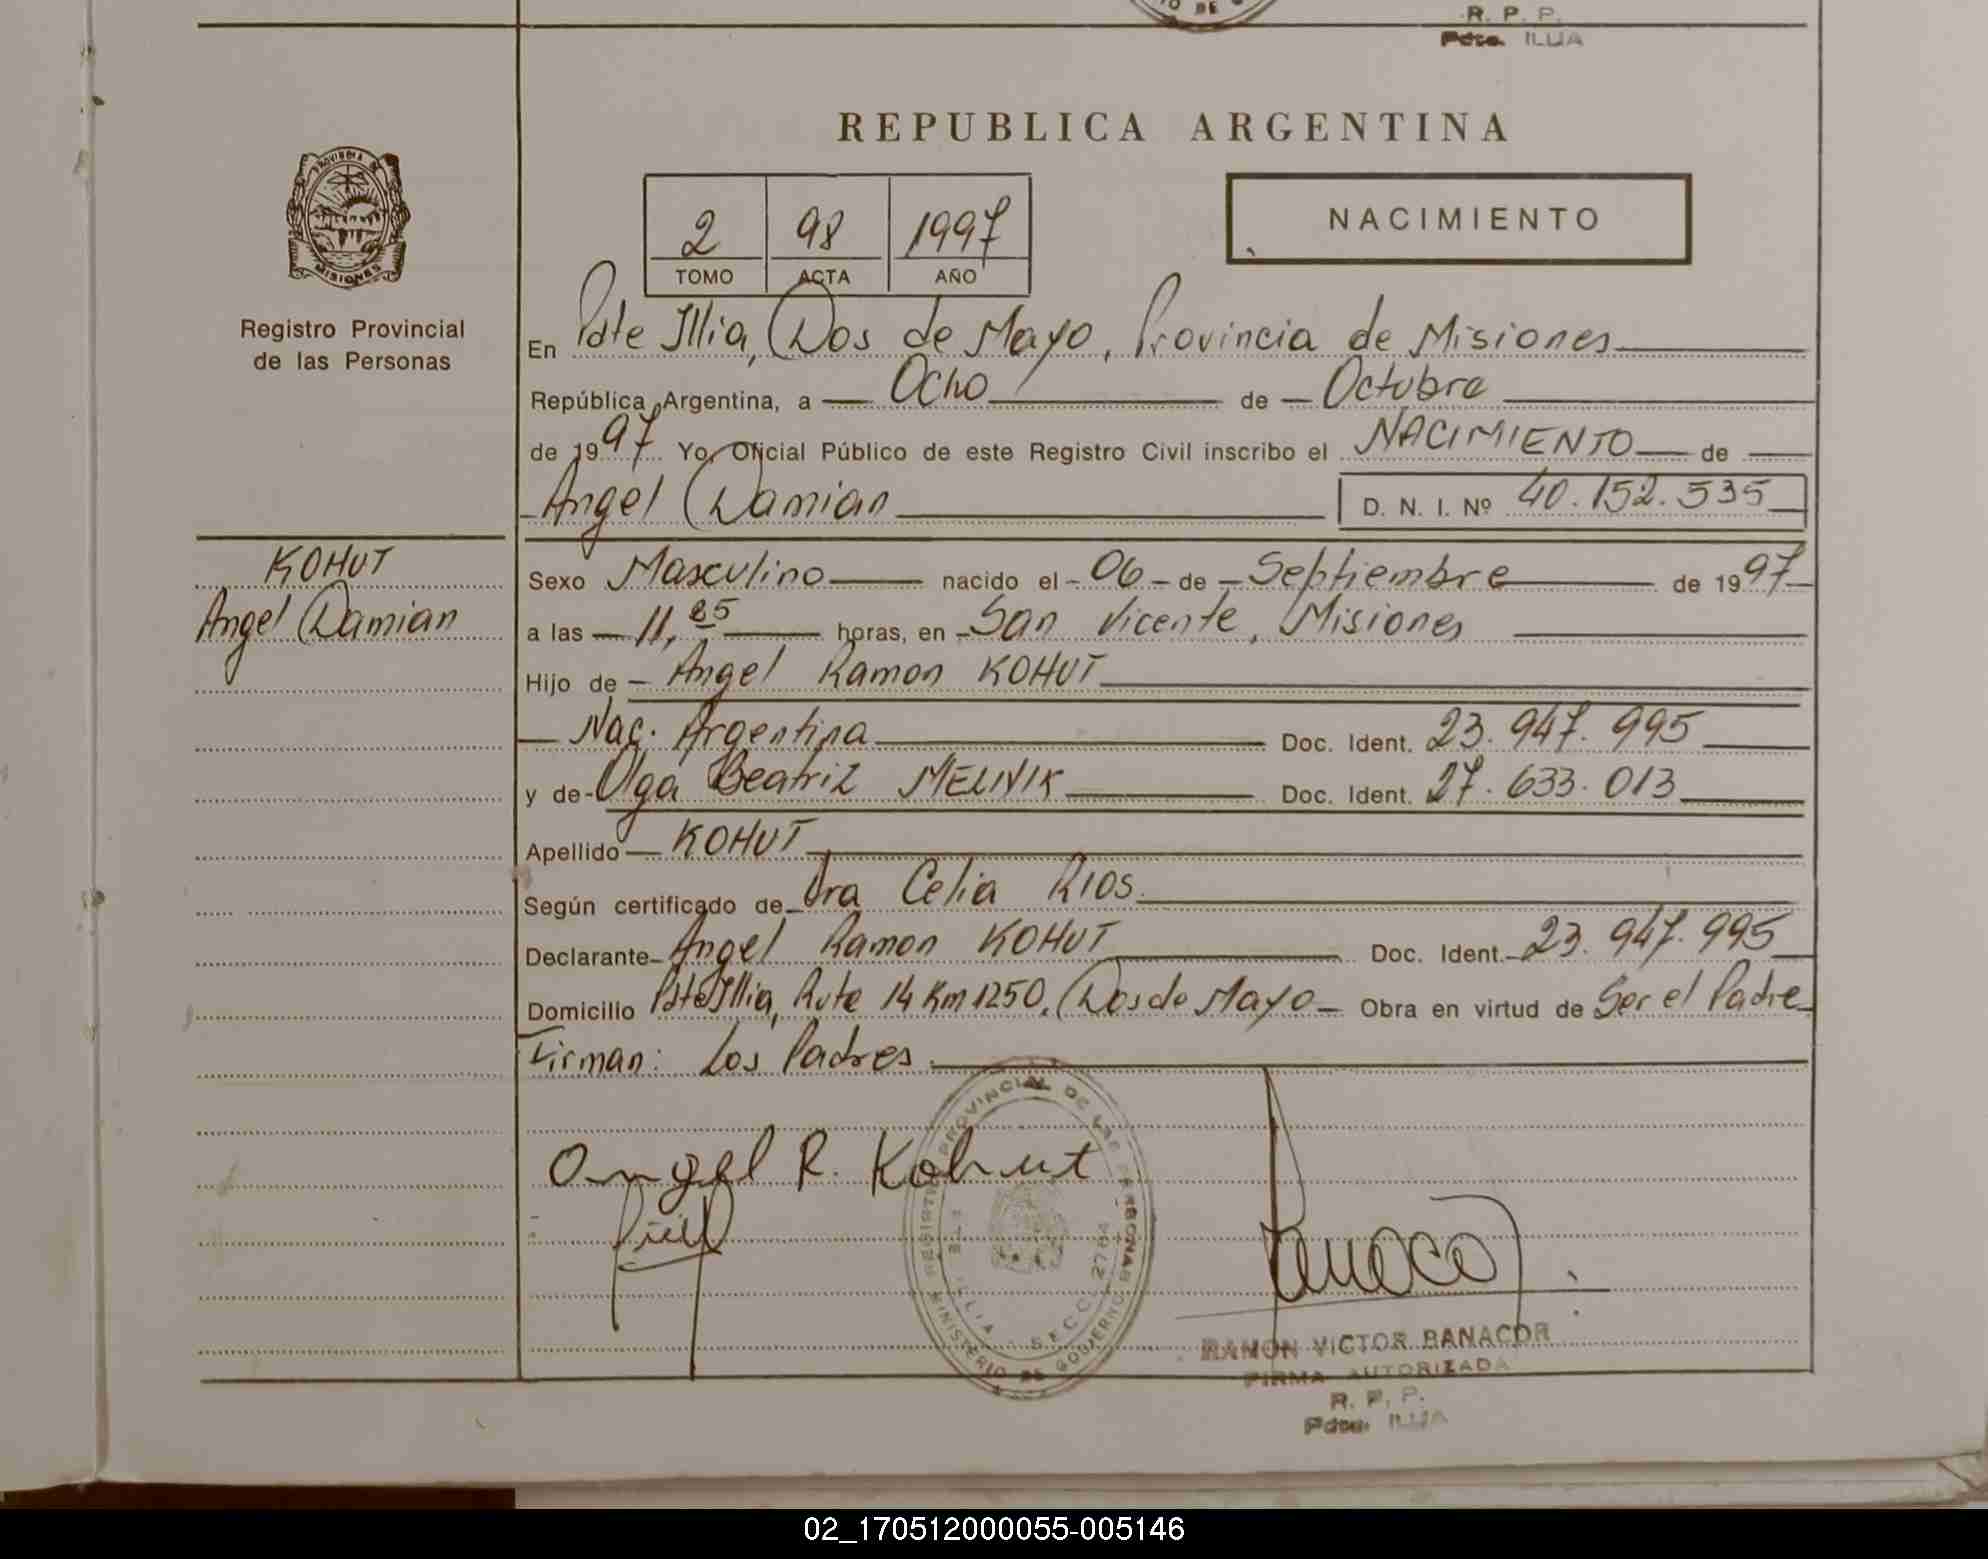 R. P. P.
Pdte. ILLIA
REPUBLICA ARGENTINA
2 98 1997
TOMO ACTA AÑO
NACIMIENTO
PROVINCIA DE
MISIONES
Registro Provincial
de las Personas
En Pdte Illia, Dos de Mayo, Provincia de Misiones
República Argentina, a Ocho de Octubre
de 1997 Yo, Oficial Público de este Registro Civil inscribo el NACIMIENTO de
Angel Damian D. N. I. Nº 40.152.535
KOHUT
Angel Damian
Sexo Masculino nacido el 06 de Septiembre de 1997
a las 11, horas, en San Vicente, Misiones
Hijo de Angel Ramon KOHUT
Nac. Argentina Doc. Ident. 23.947.995
y de Olga Beatriz MELNIK Doc. Ident. 27.633.013
Apellido KOHUT
Según certificado de Dra Celia RIOS
Declarante Angel Ramon KOHUT Doc. Ident. 23.947.995
Domicilio Pdte Illia, Ruta 14 Km 1250, Dos de Mayo Obra en virtud de Ser el Padre
Firman: Los Padres.
Angel R. Kohut
REGISTRO PROVINCIAL DE LAS PERSONAS
MINISTERIO DE GOBIERNO
ILLIA SECC. 2704
RAMON VICTOR BANACOR
FIRMA AUTORIZADA
R. P. P.
Pdte. ILLIA
02_170512000055-005146